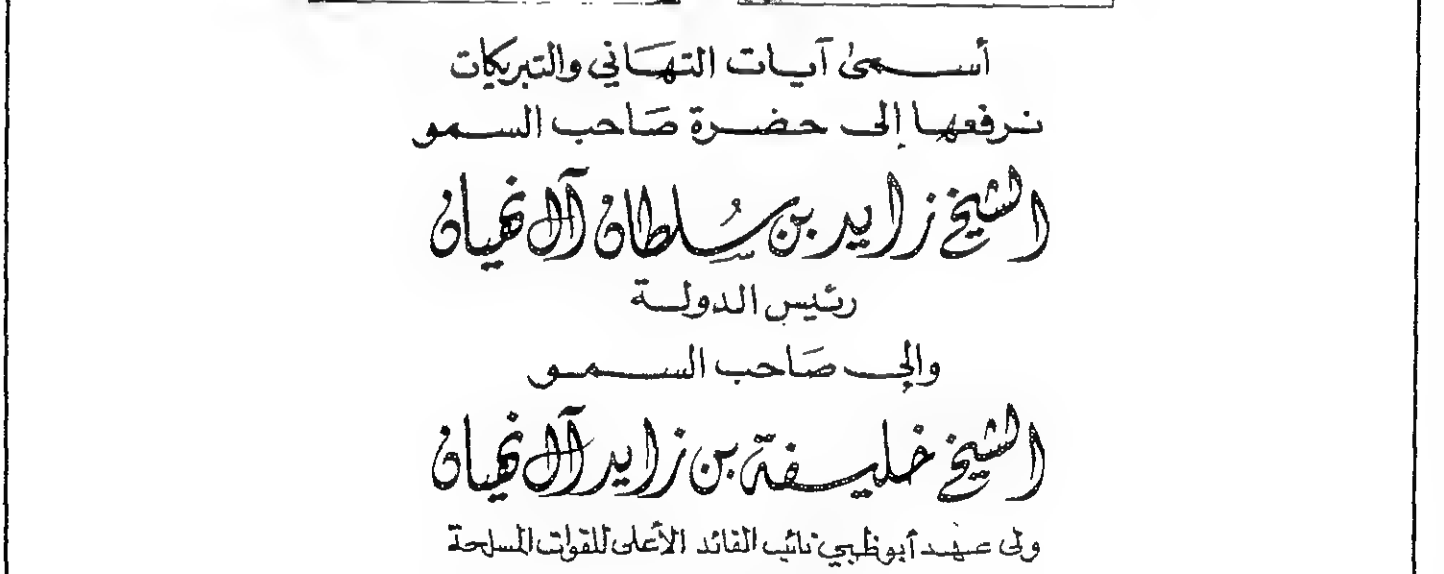 أسمى آيات التهاني والتبريكات
نرفعها إلى حضرة صاحب السمو
الشيخ زايد بن سلطان آل نهيان
رئيس الدولة
وإلى صاحب السمو
الشيخ خليفة بن زايد آل نهيان
ولى عهد أبوظبي نائب القائد الأعلى للقوات المسلحة